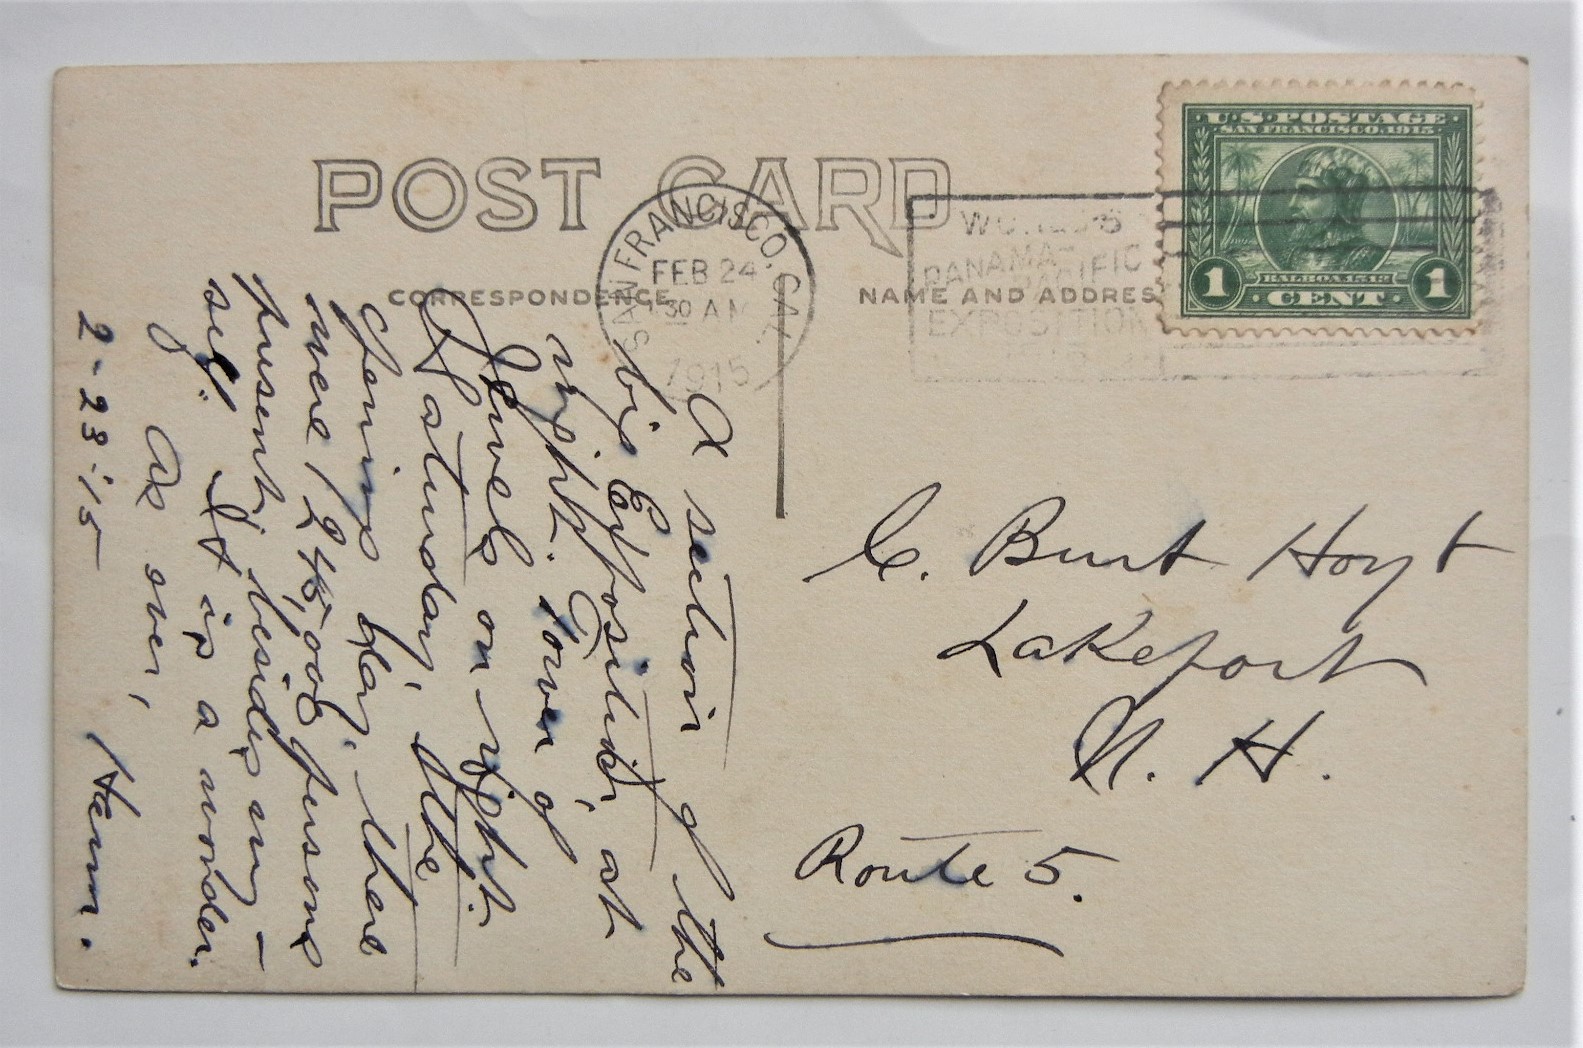 POST CARD
CORRESPONDENCE
NAME AND ADDRES
SAN FRANCISCO, CAL.
FEB 24
30 AM
1915
WORLD'S
PANAMA-
PACIFIC
EXPOSITION
U.S. POSTAGE
SAN FRANCISCO 1915
BALBOA 1513
1 CENT 1
A section of the
big Exposition, at
night. Tower of
Jewels on right.
Saturday, the
opening day, there
were 245,000 persons
present, besides my-
self. It is a wonder.
As ever,
2-23-'15 Ham.
C. Burt Hoyt
Lakeport
N. H.
Route 5.